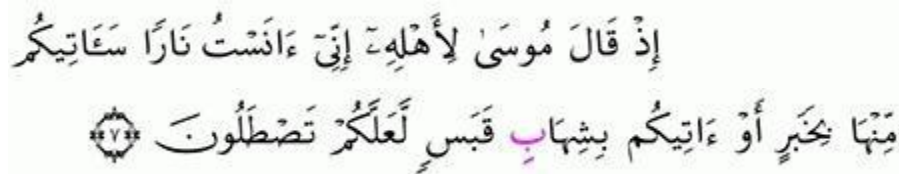 إِذْ قَالَ مُوسَىٰ لِأَهْلِهِۦٓ إِنِّىٓ ءَانَسْتُ نَارًا سَـَٔاتِيكُم
مِّنْهَا بِخَبَرٍ أَوْ ءَاتِيكُم بِشِهَابِ قَبَسٍ لَّعَلَّكُمْ تَصْطَلُونَ ۝٧